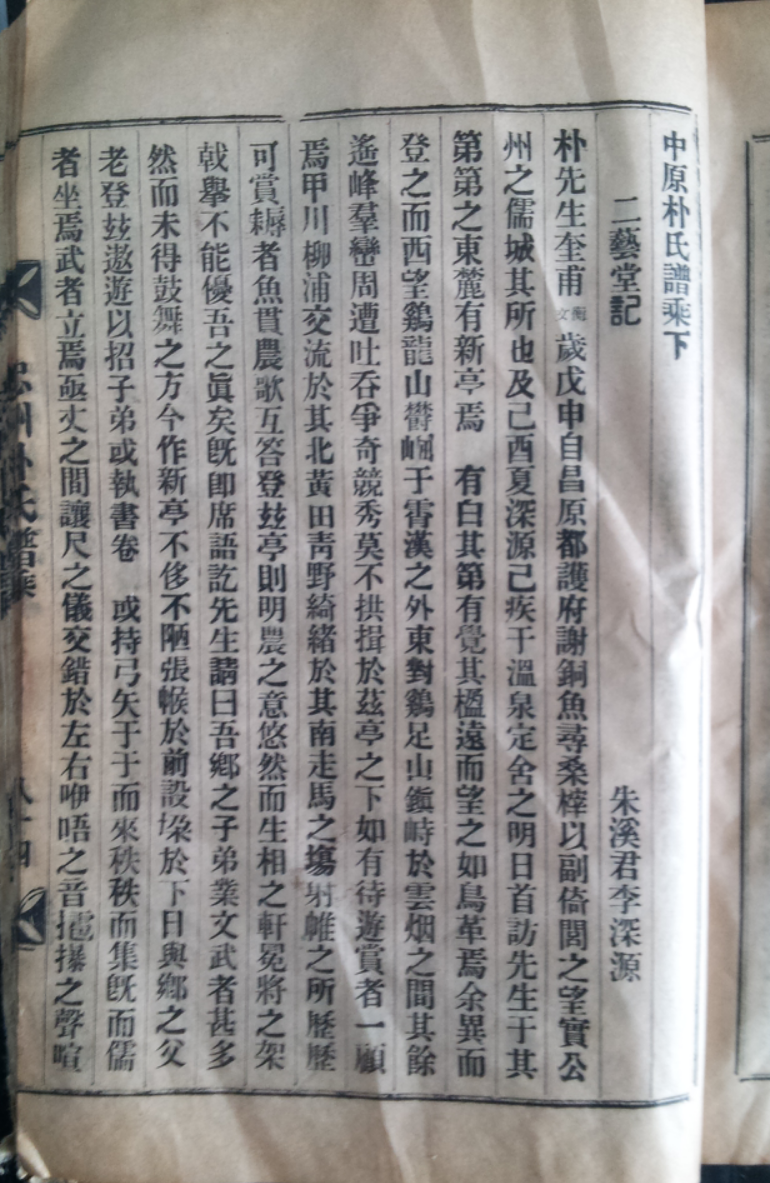 中原朴氏譜乘下
二藝堂記
朱溪君李深源
朴先生奎甫衡文歲戊申自昌原都護府謝銅魚尋桑梓以副倚閭之望實公
州之儒城其所也及己酉夏深源已疾于溫泉定舍之明日首訪先生于其
第第之東麓有新亭焉 有白其第有覺其楹遠而望之如鳥革焉余異而
登之而西望鷄龍山鬱崛于霄漢之外東對鷄足山鎭峙於雲烟之間其餘
遙峰羣巒周遭吐吞爭奇競秀莫不拱揖於茲亭之下如有待遊賞者一顧
焉甲川柳浦交流於其北黃田靑野綺緖於其南走馬之塲射帿之所歷歷
可賞耨者魚貫農歌互答登玆亭則明農之意悠然而生相之軒冕將之架
戟擧不能優吾之眞矣旣卽席語訖先生請曰吾鄕之子弟業文武者甚多
然而未得鼓舞之方今作新亭不侈不陋張帿於前設垜於下日與鄕之父
老登玆遨遊以招子弟或執書卷 或持弓矢于于而來秩秩而集旣而儒
者坐焉武者立焉凾丈之間讓尺之儀交錯於左右咿唔之音之聲喧
忠州朴氏譜乘
八十四